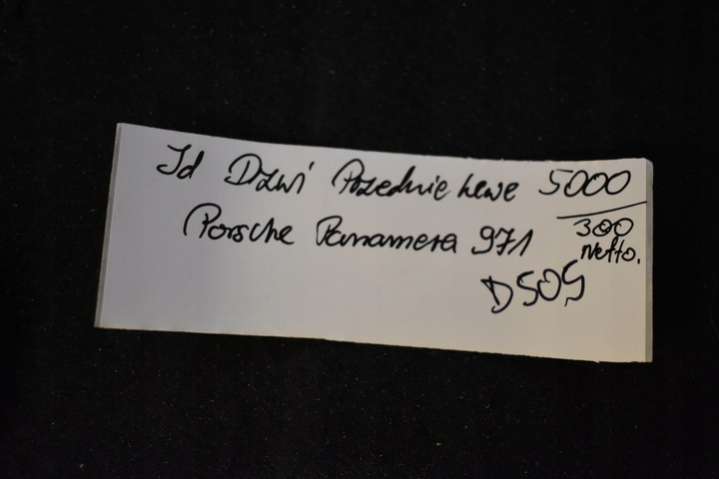 Id Dzwi Przednie Lewe 5000
Porsche Panamera 971 300
Netto.
DSOS